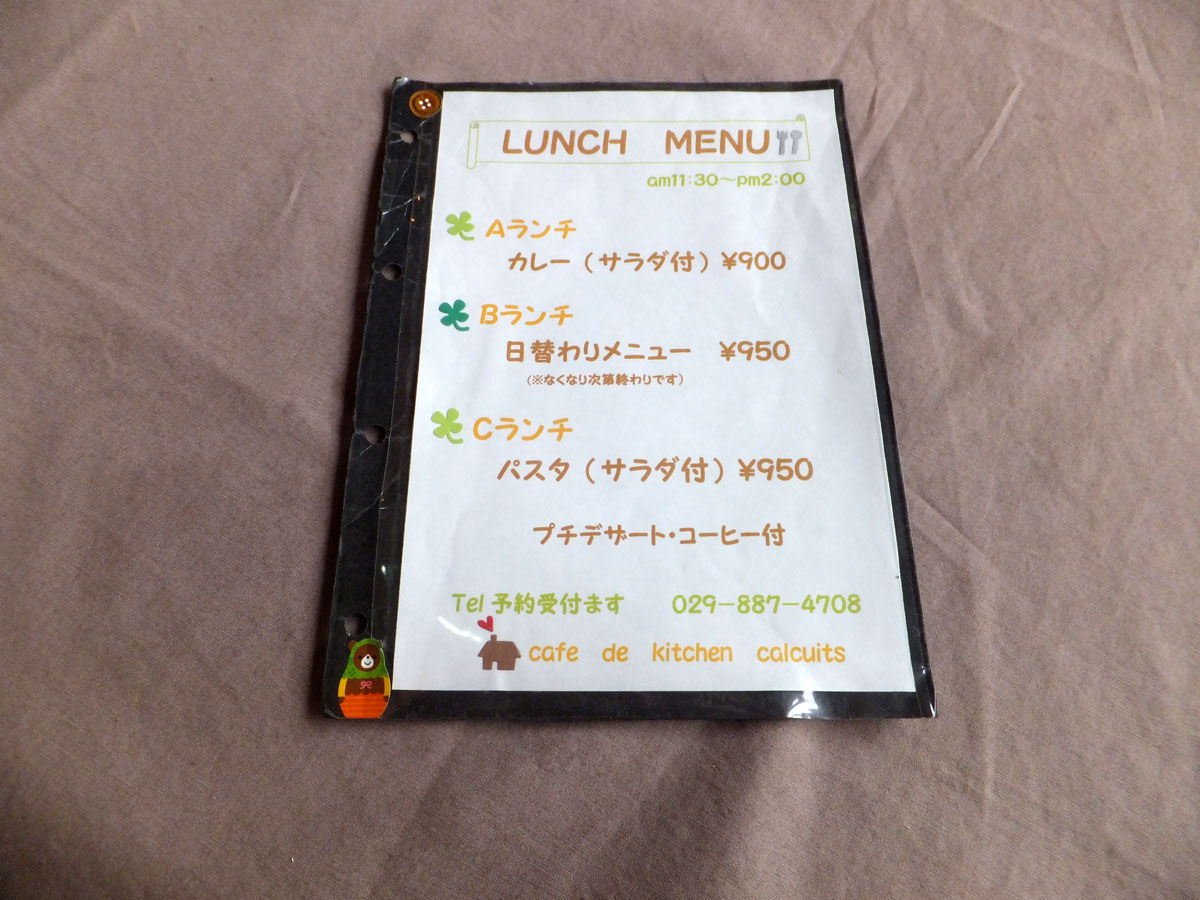 LUNCH MENU
am11:30～pm2:00
Aランチ
カレー（サラダ付）¥900
Bランチ
日替わりメニュー ¥950
（※なくなり次第終わりです）
Cランチ
パスタ（サラダ付）¥950
プチデザート・コーヒー付
Tel 予約受付ます 029－887－4708
cafe de kitchen calcuits